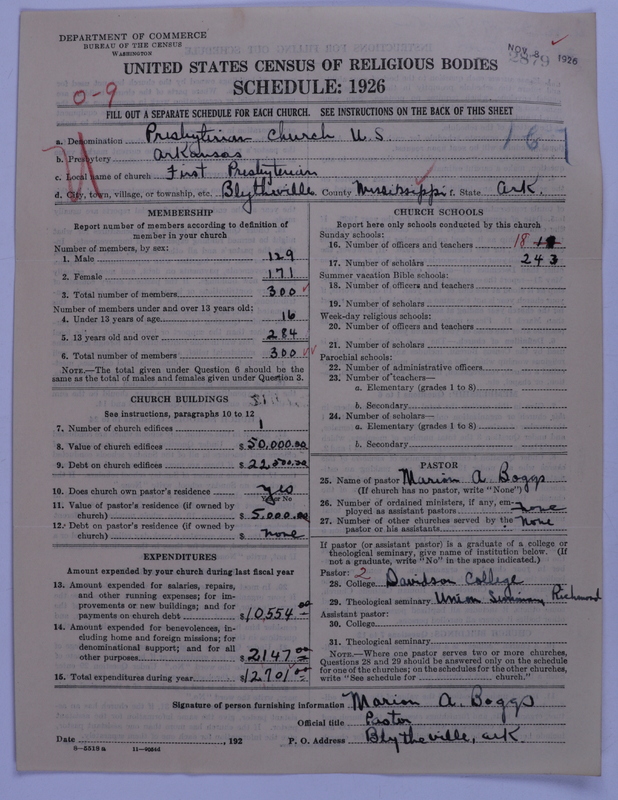 DEPARTMENT OF COMMERCE
BUREAU OF THE CENSUS
WASHINGTON
NOV 8 1926
2879
UNITED STATES CENSUS OF RELIGIOUS BODIES
SCHEDULE: 1926
0-9
FILL OUT A SEPARATE SCHEDULE FOR EACH CHURCH. SEE INSTRUCTIONS ON THE BACK OF THIS SHEET
167
a. Denomination Presbyterian Church U.S.
b. Presbytery Arkansas
c. Local name of church First Presbyterian
d. City, town, village, or township, etc. Blytheville County Mississippi f. State Ark.
MEMBERSHIP
Report number of members according to definition of
member in your church
Number of members, by sex:
1. Male 129
2. Female 171
3. Total number of members 300
Number of members under and over 13 years old:
4. Under 13 years of age 16
5. 13 years old and over 284
6. Total number of members 300
NOTE.—The total given under Question 6 should be the
same as the total of males and females given under Question 3.
CHURCH BUILDINGS
See instructions, paragraphs 10 to 12
7. Number of church edifices 1
8. Value of church edifices $50,000.00
9. Debt on church edifices $22,500.00
10. Does church own pastor's residence yes
Yes or No
11. Value of pastor's residence (if owned by
church) $5,000.00
12. Debt on pastor's residence (if owned by
church) $ none
EXPENDITURES
Amount expended by your church during last fiscal year
13. Amount expended for salaries, repairs,
and other running expenses; for im-
provements or new buildings; and for
payments on church debt $10,554.00
14. Amount expended for benevolences, in-
cluding home and foreign missions; for
denominational support; and for all
other purposes $2147.00
15. Total expenditures during year $12,701.00
CHURCH SCHOOLS
Report here only schools conducted by this church
Sunday schools:
16. Number of officers and teachers 18
17. Number of scholars 243
Summer vacation Bible schools:
18. Number of officers and teachers
19. Number of scholars
Week-day religious schools:
20. Number of officers and teachers
21. Number of scholars
Parochial schools:
22. Number of administrative officers
23. Number of teachers—
a. Elementary (grades 1 to 8)
b. Secondary
24. Number of scholars—
a. Elementary (grades 1 to 8)
b. Secondary
PASTOR
25. Name of pastor Marion A. Boggs
(If church has no pastor, write "None")
26. Number of ordained ministers, if any, em-
ployed as assistant pastors none
27. Number of other churches served by the
pastor or his assistants none
If pastor (or assistant pastor) is a graduate of a college or
theological seminary, give name of institution below. (If
not a graduate, write "No" in the space indicated.)
Pastor: 2
28. College Davidson College
29. Theological seminary Union Seminary Richmond
Assistant pastor:
30. College
31. Theological seminary
NOTE.—Where one pastor serves two or more churches,
Questions 28 and 29 should be answered only on the schedule
for one of the churches; on the schedules for the other churches,
write "See schedule for church."
Signature of person furnishing information Marion A. Boggs
Official title Pastor
Date , 192 P. O. Address Blytheville, Ark.
8—5518 a